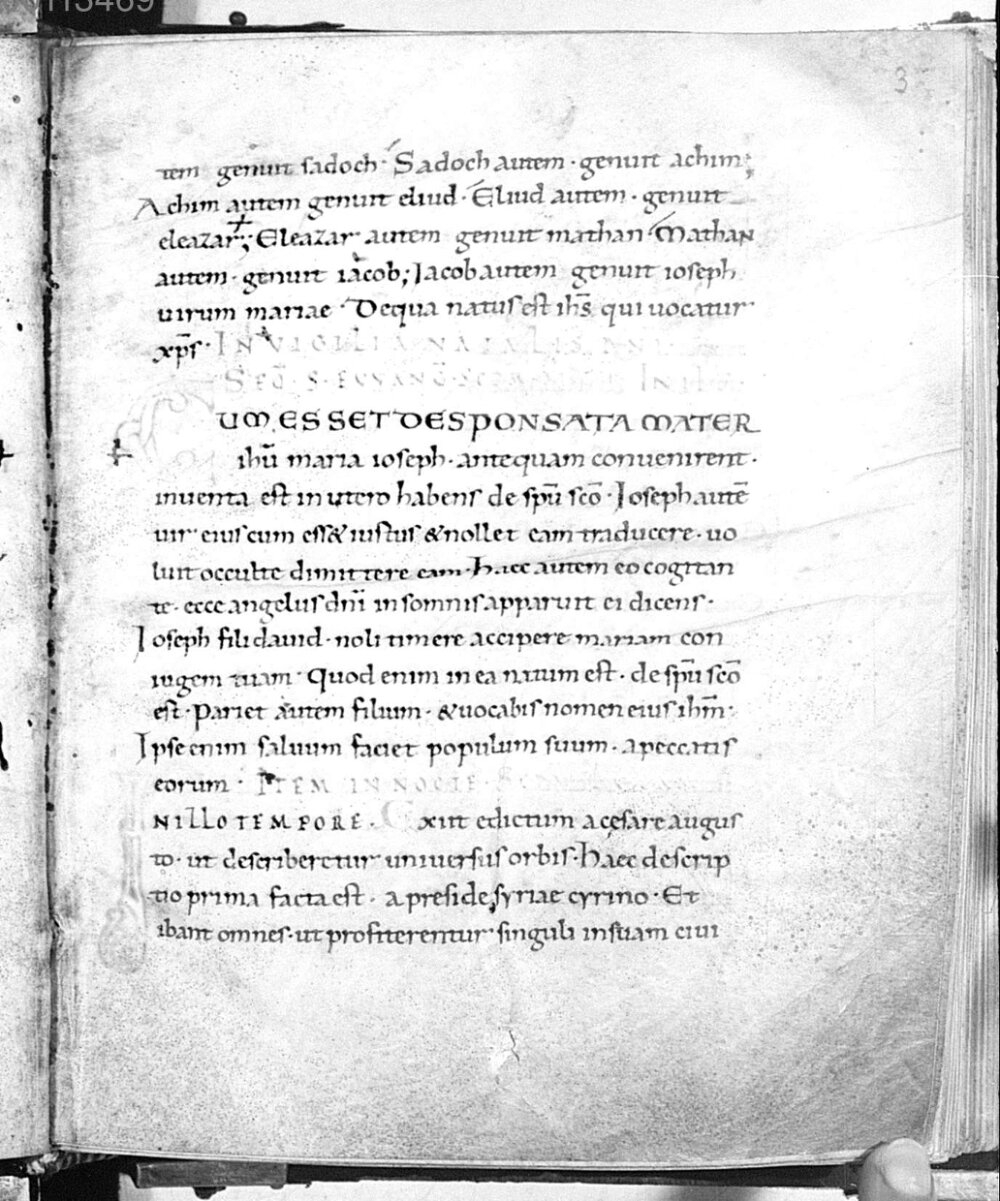 3
tem genuit sadoch · Sadoch autem · genuit achim;
Achim autem genuit eliud · Eliud autem · genuit
eleazar; Eleazar autem genuit mathan · Mathan
autem · genuit iacob; Iacob autem genuit ioseph
uirum mariae · De qua natus est ihs̄ qui uocatur
xp̄s · IN VIGILIA NATALIS
SEQ̄ S. EUUANG̅
UM ESSET DESPONSATA MATER
ihū maria ioseph · antequam conuenirent ·
inuenta est in utero habens de spū sc̄o · Ioseph autē
uir eius cum ess& iustus & nollet eam traducere · uo
luit occulte dimittere eam · Haec autem eo cogitan
te · ecce angelus dn̄i in somnis apparuit ei dicens ·
Ioseph fili dauid · noli timere accipere mariam con
iugem tuam · Quod enim in ea natum est · de spū sc̄o
est · Pariet autem filium · & uocabis nomen eius ihm̄ ·
Ipse enim saluum faciet populum suum · a peccatis
eorum · ITEM IN NOCTE ·
N ILLO TEMPORE · Exiit edictum a cęsare augus
to · ut describeretur uniuersus orbis · Haec descrip
tio prima facta est · a preside syriae cyrino · Et
ibant omnes · ut profiterentur singuli in suam ciui